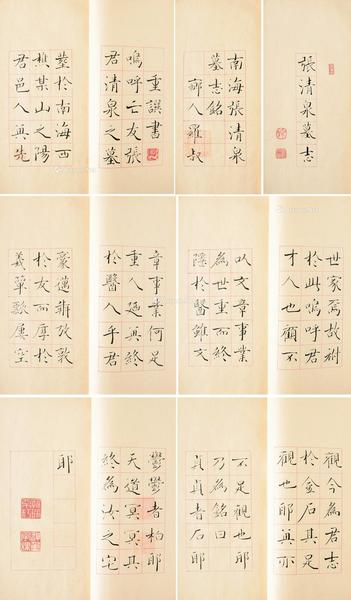 張清泉墓志
南海張清泉
墓志銘
人羅叔
重譔書
嗚呼亡友張
君清泉之墓
塟於南海西
樵某山之陽
君邑人與先
世家焉故
於此嗚呼君
才人也顧不
以文章事業
為世重而終
隱於醫雖文
章事業何足
重人適與終
於醫人乎君
豪邁敦
於友而厚於
義簞瓢屢空
觀今為君志
於金石其足
觀也耶其亦
不足觀也耶
乃為銘曰
者石耶
鬱鬱者柏耶
天道冥冥其
終為汝之宅
耶